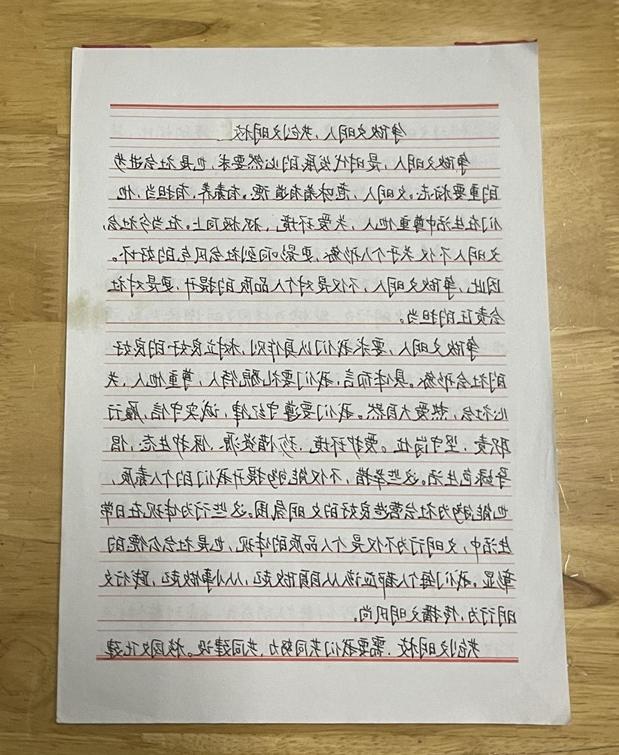 争做文明人，共创文明校
争做文明人，是时代发展的必然要求，也是社会进步
的重要标志。文明人，意味着有道德、有素养、有担当，他
们在生活中尊重他人、关爱环境、积极向上。在当今社会，
文明人不仅关乎个人形象，更影响到社会风气的好坏。
因此，争做文明人，不仅是对个人品质的提升，更是对社
会责任的担当。
争做文明人，要求我们以身作则，树立良好的良好
的社会形象。具体而言，我们要礼貌待人，尊重他人，关
心社会，热爱大自然。我们要遵守纪律，诚实守信，履行
职责，坚守岗位。爱护环境，珍惜资源，保护生态，倡
导绿色生活。这些举措，不仅能够提升我们的个人素质，
也能够为社会营造良好的文明氛围。这些行为体现在日常
生活中，文明行为不仅是个人品质的体现，也是社会公德的
彰显。我们每个人都应该从自身做起，从小事做起，践行文
明行为，传播文明风尚。
共创文明校，需要我们共同努力，共同建设。校园文化建